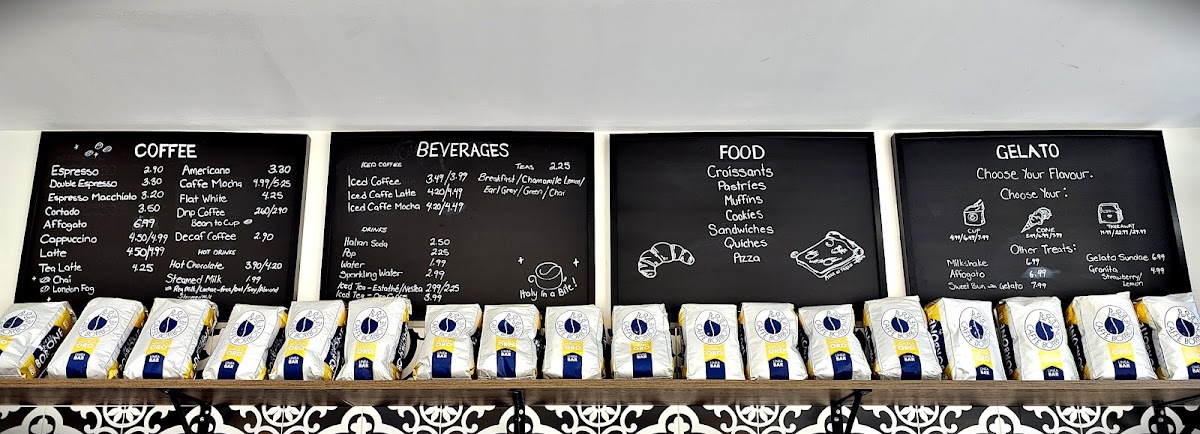 COFFEE
Espresso 2.90
Double Espresso 3.80
Espresso Macchiato 3.20
Cortado 3.50
Affogato 6.99
Cappuccino 4.50/4.99
Latte 4.50/4.99
Tea Latte 4.25
Chai
London Fog
Americano 3.30
Caffe Mocha 4.99/5.25
Flat White 4.25
Drip Coffee 2.60/2.90
Bean to Cup
Decaf Coffee 2.90
HOT DRINKS
Hot Chocolate 3.90/4.20
Steamed Milk 1.99
BEVERAGES
ICED COFFEE
Iced Coffee 3.49/3.99
Iced Caffe Latte 4.20/4.49
Iced Caffe Mocha 4.20/4.49
DRINKS
Italian Soda 2.50
Pop 2.25
Water 1.99
Sparkling Water 2.99
Iced Tea - Estathé/Nestea 2.99/2.25
Iced Tea - 3.99
TEAS 2.25
Breakfast/Chamomile Lemon/
Earl Grey/Green/Chai
Italy in a Bite!
FOOD
Croissants
Pastries
Muffins
Cookies
Sandwiches
Quiches
Pizza
GELATO
Choose Your Flavour.
Choose Your:
CUP
CONE
TAKEAWAY
Other Treats:
Milkshake 6.99
Affogato 6.99
Sweet Bun with Gelato 7.99
Gelato Sundae 6.99
Granita 4.99
Strawberry/
Lemon